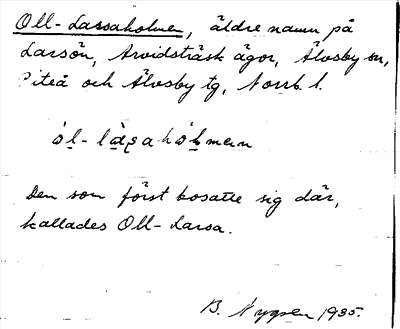 Oll-Lassaholmen, äldre namn på
Larsön, Arvidsträsk ägor, Älvsby sn,
Piteå och Älvsby tg, Norrb. l.
Den som först bosatte sig där,
kallades Oll-Larsa.
B. Nygren 1935.